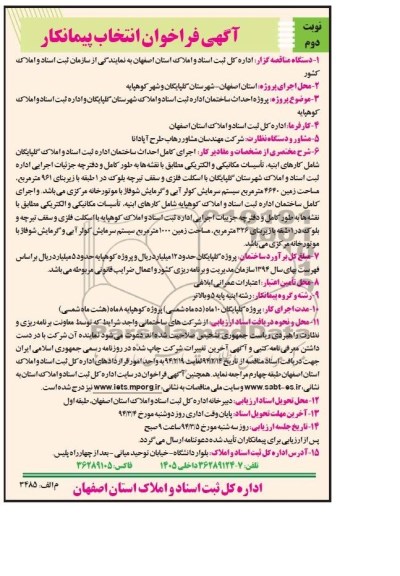 نوبت
دوم
آگهی فراخوان انتخاب پیمانکار
۱-دستگاه مناقصه گزار: اداره کل ثبت اسناد و املاک استان اصفهان به نمایندگی از سازمان ثبت اسناد و املاک
کشور
۲-محل اجرای پروژه: استان اصفهان-شهرستان گلپایگان و شهر کوهپایه
۳-موضوع پروژه: پروژه احداث ساختمان اداره ثبت اسناد و املاک شهرستان گلپایگان و اداره ثبت اسناد و املاک
کوهپایه
۴-کارفرما: اداره کل ثبت اسناد و املاک استان اصفهان
۵-مشاور و دستگاه نظارت: شرکت مهندسان مشاور رهاب طرح آپادانا
۶-شرح مختصری از مشخصات و مقادیر کار: اجرای کامل احداث ساختمان اداره ثبت اسناد و املاک گلپایگان
شامل کارهای ابنیه، تأسیسات مکانیکی و الکتریکی مطابق با نقشه‌ها به طور کامل و دفترچه جزئیات اجرایی اداره
ثبت اسناد و املاک شهرستان گلپایگان با اسکلت فلزی و سقف تیرچه بلوک در ۱ طبقه با زیربنای ۹۶۱ مترمربع،
مساحت زمین ۴۶۴۰ مترمربع سیستم سرمایش کولر آبی و گرمایش شوفاژ با موتورخانه مرکزی می‌باشد. و اجرای
کامل ساختمان اداره ثبت اسناد و املاک کوهپایه شامل کارهای ابنیه، تأسیسات مکانیکی و الکتریکی مطابق با
نقشه‌ها به طور کامل و دفترچه جزییات اجرایی اداره ثبت اسناد و املاک کوهپایه با اسکلت فلزی و سقف تیرچه و
بلوک در ۱ طبقه با زیربنای ۳۲۶ مترمربع، مساحت زمین ۱۰۰۰ مترمربع سیستم سرمایش کولر آبی و گرمایش شوفاژ با
موتورخانه مرکزی می‌باشد.
۷-مبلغ کل برآورد ساختمان: پروژه گلپایگان حدود ۱۲ میلیارد ریال و پروژه کوهپایه حدود ۵ میلیارد ریال براساس
فهرست بهای سال ۱۳۹۴ سازمان مدیریت و برنامه ریزی کشور و اعمال ضرایب قانونی مربوطه می باشد.
۸-محل تأمین اعتبار: اعتبارات عمرانی ابلاغی
۹-رشته و گروه پیمانکار: رشته ابنیه پایه ۵ و بالاتر
۱۰-مدت اجرای کار: پروژه گلپایگان ۱۰ ماه (ده ماه شمسی) پروژه کوهپایه ۸ ماه (هشت ماه شمسی)
۱۱-محل و نحوه دریافت اسناد ارزیابی: از شرکت های ساختمانی واجد شرایط که توسط معاونت برنامه ریزی و
نظارت راهبردی ریاست جمهوری تشخیص صلاحیت شده‌اند دعوت می‌شود نماینده آن شرکت با در دست
داشتن معرفی نامه کتبی و آگهی آخرین تغییرات شرکت چاپ شده در روزنامه رسمی جمهوری اسلامی ایران
جهت دریافت اسناد مناقصه از تاریخ لغایت ۹۴/۲/۱۹ به واحد امور قراردادهای اداره کل ثبت اسناد و املاک
استان اصفهان طبقه چهارم مراجعه نماید. همچنین آگهی فراخوان در سایت اداره کل ثبت اسناد و املاک استان به
نشانی: www.sabt-es.ir و سایت ملی مناقصات به نشانی: www.iets.mporg.ir نیز درج شده است.
۱۲-محل تحویل اسناد ارزیابی: دبیرخانه اداره کل ثبت اسناد و املاک استان اصفهان، طبقه اول
۱۳-آخرین مهلت تحویل اسناد: پایان وقت اداری روز دوشنبه مورخ ۹۴/۳/۴
۱۴-تاریخ جلسه ارزیابی: روز سه شنبه مورخ ۹۴/۳/۵ ساعت ۹ صبح
پس از ارزیابی برای پیمانکاران تأیید شده دعوتنامه ارسال می گردد.
۱۵-آدرس اداره کل ثبت اسناد و املاک: بلوار دانشگاه-خیابان توحید میانی-بعد از چهارراه پلیس
تلفن: ۷-۳۶۲۸۹۱۲۴ داخلی ۱۴۰۵ فاکس: ۳۶۲۸۹۱۰۵
اداره کل ثبت اسناد و املاک استان اصفهان
م الف: ۳۴۸۵